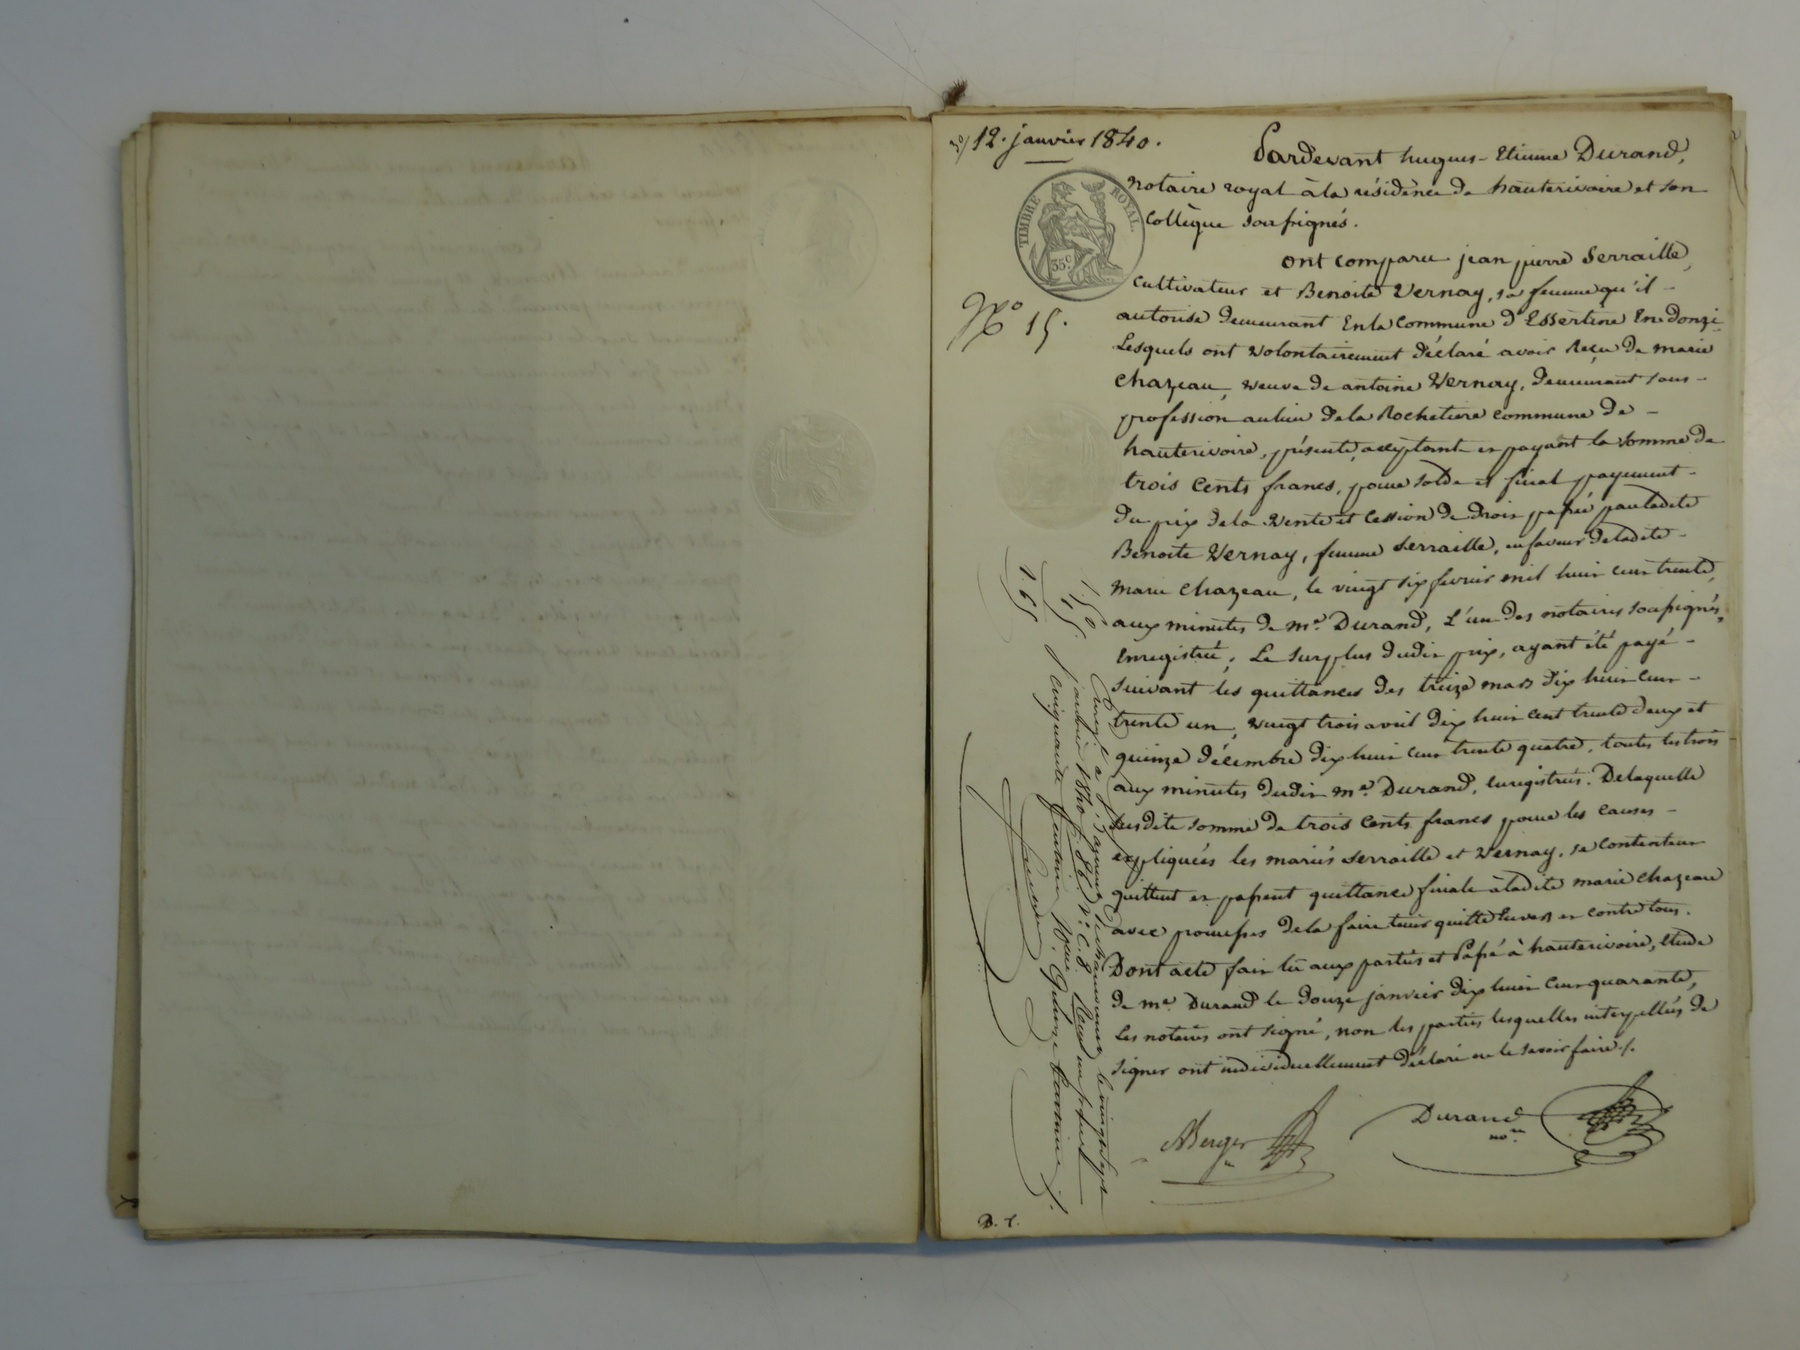 12. janvier 1840.
TIMBRE ROYAL.
35c
No 15.
Pardevant hugues-Etienne Durand,
notaire royal à la résidence de hauterivoire et son
Collègue soussignés.
ont comparu jean pierre Serraille,
cultivateur et Benoite Vernay, sa femme qu'il -
autorise demeurant En la commune d'Essertine En donzi
Lesquels ont volontairement déclaré avoir Reçu de marie
Chazeau, veuve de antoine Vernay, demeurant sans -
profession au lieu de la Rochetiere commune de -
hauterivoire, présente, acceptante et payant la somme de
trois Cents francs, pour solde et final payement -
du prix de la Vente et Cession de droit passée par ladite
Benoite Vernay, femme Serraille, en faveur de ladite -
marie Chazeau, le vingt six fevrier mil huit cent trente,
aux minutes de me. Durand, L'un des notaires soussignés,
Enregistrée. Le Surplus dudit prix, ayant été payé -
suivant les quittances des treize mars dix huit cent -
trente un, vingt trois avril dix huit cent trente deux et
quinze décembre dix huit cent trente quatre, toutes les trois
aux minutes dudit me. Durand, Enregistrées. De laquelle
susdite somme de trois Cents francs pour les causes -
expliquées les mariés Serraille et Vernay, se contentent
quittent et passent quittance finale à ladite marie Chazeau
avec promesses de la faire tenir quitte Envers et contre tous.
Dont acte fait lu aux parties et Passé à hauterivoire, Etude
de me Durand le douze janvier dix huit Cent quarante,
Les notaires ont signé, non les parties lesquelles interpellées de
signer ont individuellement déclaré ne le savoir faire ./.
Berger
Durand
nore
1.50
15
1.65
le vingt sept
janvier 1840 f. 86 Vo. C. 8. Reçu un franc
cinquante centimes Pour quinze centimes ./.